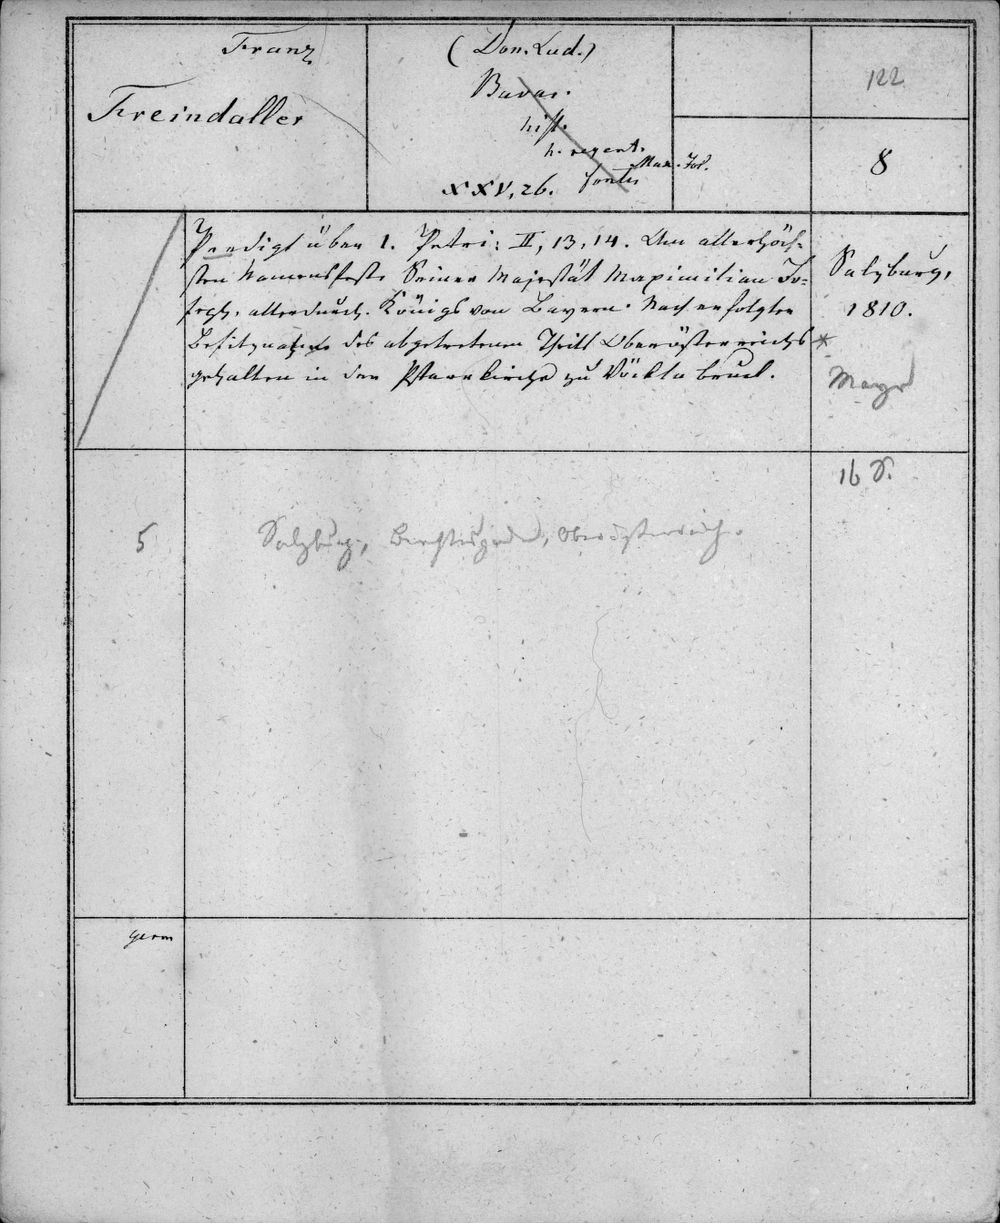 Franz
Freindaller
(Don. Lud.)
Bavar.
hist.
h. regent.
Max. Jos.
fontes
XXV, 26.
122
8
Predigt über 1. Petri: II, 13, 14. Am allerhöch-
sten Namensfeste Seiner Majestät Maximilian Jo-
sephs, allerdurch. Königs von Bayern. Nach erfolgter
Besitznahme des abgetretenen Theils Oberösterreichs
gehalten in der Pfarrkirche zu Vöckla bruck.
Salzburg,
1810.
*
Mayr
16 S.
5
Salzburg, Berchtesgaden, Oberösterreich.
germ